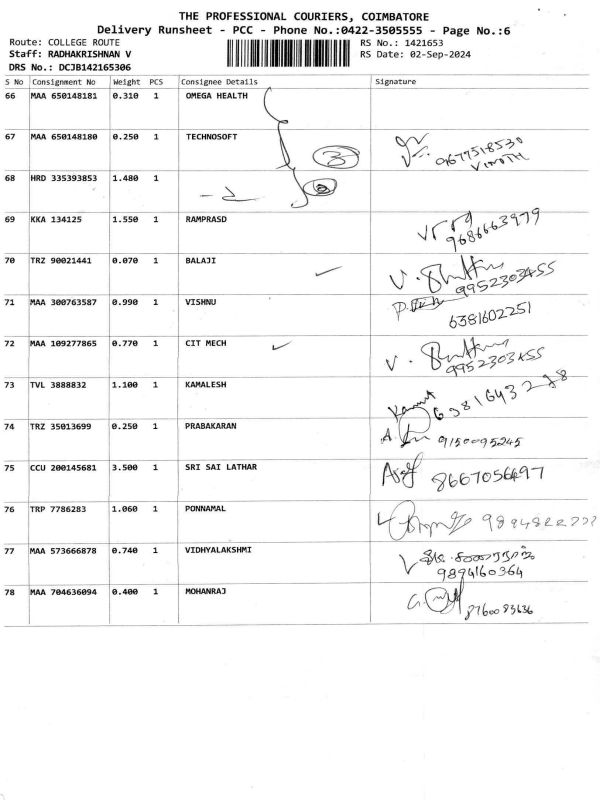 THE PROFESSIONAL COURIERS, COIMBATORE
Delivery Runsheet - PCC - Phone No.:0422-3505555 - Page No.:6
Route: COLLEGE ROUTE RS No.: 1421653
Staff: RADHAKRISHNAN V RS Date: 02-Sep-2024
DRS No.: DCJB142165306
S No Consignment No Weight PCS Consignee Details Signature
66 MAA 650148181 0.310 1 OMEGA HEALTH
67 MAA 650148180 0.250 1 TECHNOSOFT 9677518530
3 VINOTH
68 HRD 335393853 1.480 1
69 KKA 134125 1.550 1 RAMPRASD 9686663979
70 TRZ 90021441 0.070 1 BALAJI 9952303455
71 MAA 300763587 0.990 1 VISHNU 6381602251
72 MAA 109277865 0.770 1 CIT MECH 9952303455
73 TVL 3888832 1.100 1 KAMALESH
74 TRZ 35013699 0.250 1 PRABAKARAN 9150095245
75 CCU 200145681 3.500 1 SRI SAI LATHAR 8667056497
76 TRP 7786283 1.060 1 PONNAMAL
77 MAA 573666878 0.740 1 VIDHYALAKSHMI
9894160364
78 MAA 704636094 0.400 1 MOHANRAJ 8760083636